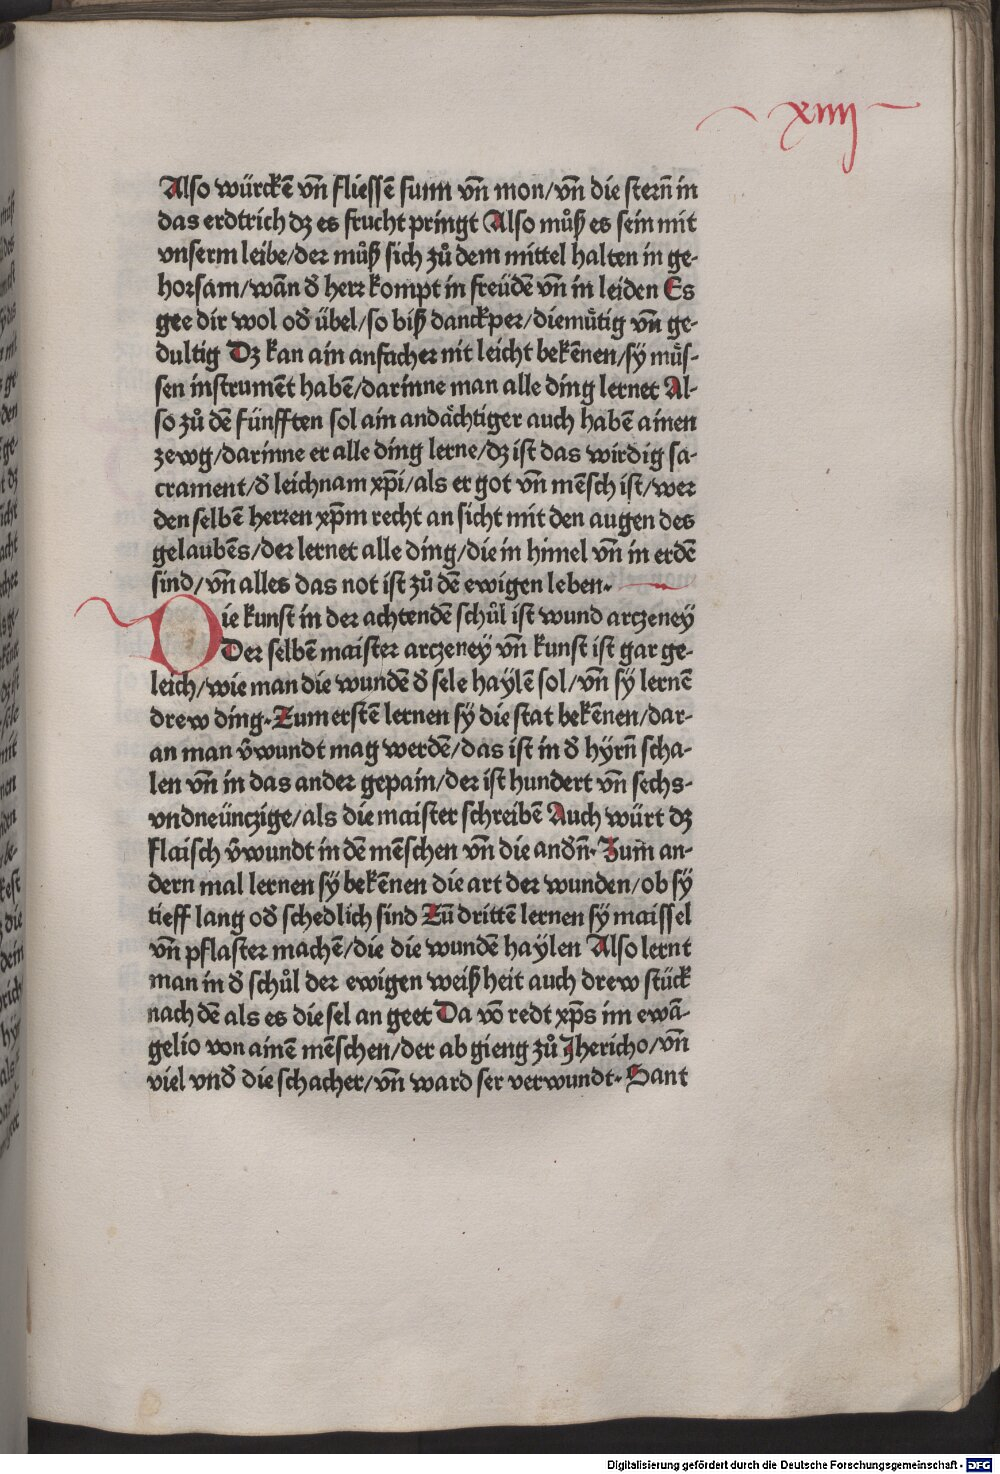 xiiij
Also würckē vn̄ fliessē sunn vn̄ mon/vn̄ die stern̄ in
das erdtrich dz es frucht pringt Also můß es sein mit
vnserm leibe/der můß sich zů dem mittel halten in ge-
horsam/wān d̄ herr kompt in freüdē vn̄ in leiden Es
gee dir wol od̄ übel/so biß danckper/diemütig vn̄ ge-
dultig Dz kan ain anfacher nit leicht bekēnen/sy mů̈s-
sen instrumēt habē/darinne man alle ding lernet Al-
so zů dē fünfften sol ain andåchtiger auch habē ainen
zewg/darinne er alle ding lerne/dz ist das wirdig sa-
crament/d̄ leichnam xp̄i/als er got vn̄ mēsch ist/wer
den selbē herren xp̄m recht an sicht mit den augen des
gelaubēs/der lernet alle ding/die in himel vn̄ in erdē
sind/vn̄ alles das not ist zů dē ewigen leben.
Die kunst in der achtendē schůl ist wund arczeney
Der selbē maister arczeney vn̄ kunst ist gar ge-
leich/wie man die wundē d̄ sele haylē sol/vn̄ sy lernē
drew ding. Zum erstē lernen sy die stat bekēnen/dar-
an man v̄wundt mag werdē/das ist in d̄ hyrn̄ scha-
len vn̄ in das ander gepain/der ist hundert vn̄ sechs-
vndneünczige/als die maister schreibē Auch würt dz
flaisch v̄wundt in dē mēschen vn̄ die and̄n̄. Zum̄ an-
dern mal lernen sy bekēnen die art der wunden/ob sy
tieff lang od̄ schedlich sind Zū drittē lernen sy maissel
vn̄ pflaster machē/die die wundē haylen Also lernt
man in d̄ schůl der ewigen weißheit auch drew stück
nach dē als es die sel an geet Da vō redt xp̄s im ewā-
gelio von ainē mēschen/der ab gieng zů Jhericho/vn̄
viel vnd̄ die schacher/vn̄ ward ser verwundt. Sant
Digitalisierung gefördert durch die Deutsche Forschungsgemeinschaft - DFG